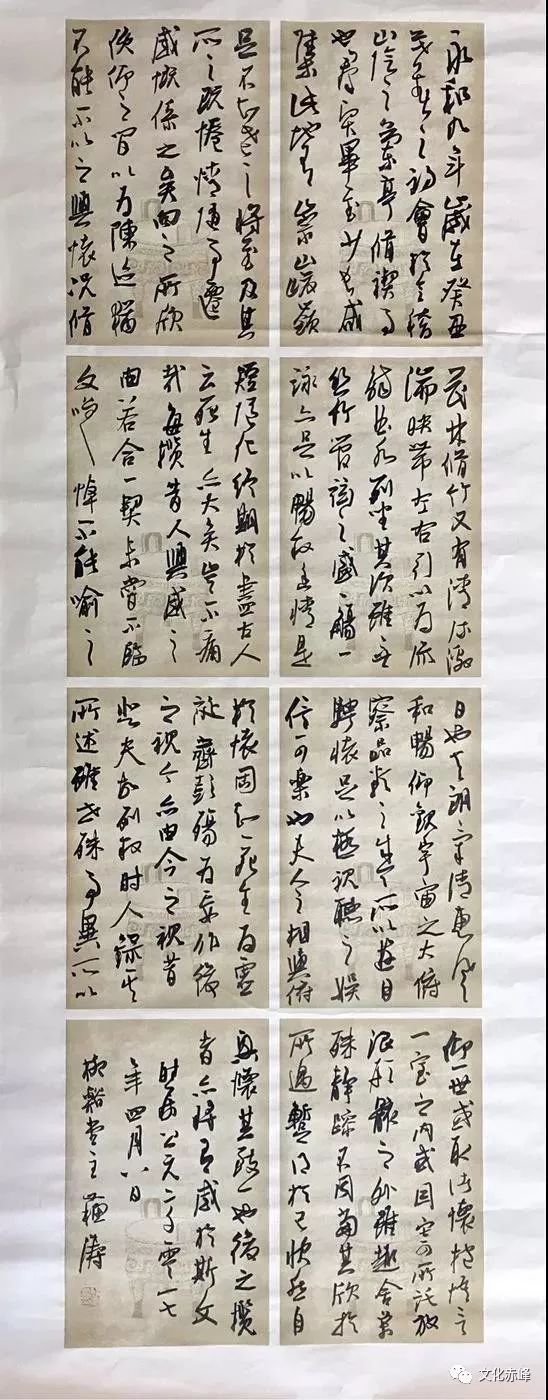 永和九年歲在癸丑
暮春之初會於會稽
山陰之蘭亭脩禊事
也羣賢畢至少長咸
集此地有崇山峻嶺
茂林脩竹又有清流激
湍映帶左右引以為流
觴曲水列坐其次雖無
絲竹管弦之盛一觴一
詠亦足以暢敘幽情是
日也天朗氣清惠風
和暢仰觀宇宙之大俯
察品類之盛所以遊目
騁懷足以極視聽之娛
信可樂也夫人之相與俯
仰一世或取諸懷抱悟言
一室之內或因寄所託放
浪形骸之外雖趣舍萬
殊靜躁不同當其欣於
所遇暫得於己快然自
足不知老之將至及其
所之既惓情隨事遷
感慨係之矣向之所欣
俛仰之間以為陳迹猶
不能不以之興懷況脩
短隨化終期於盡古人
云死生亦大矣豈不痛
哉每攬昔人興感之
由若合一契未嘗不臨
文嗟悼不能喻之
於懷固知一死生為虛
誕齊彭殤為妄作後
之視今亦由今之視昔
悲夫故列敘時人錄其
所述雖世殊事異所以
興懷其致一也後之攬
者亦將有感於斯文
公元二千零一七
年四月八日
柳谿堂主 蘇濤
文化赤峰